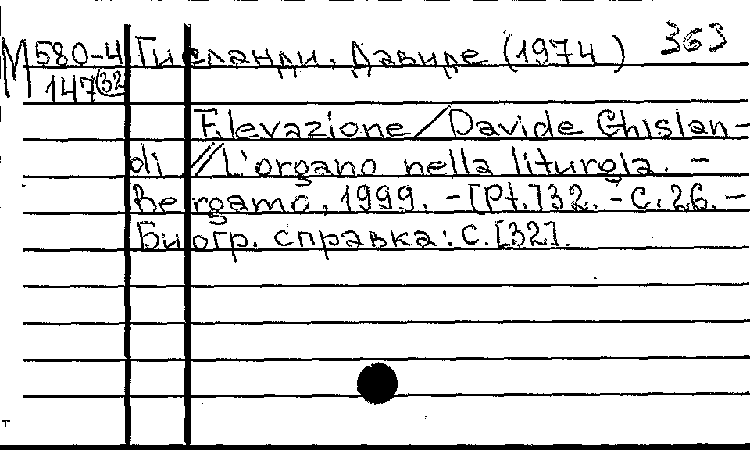 М 580-4 Гисланди, Давиде (1974 ) 363
147 (32)
Elevazione / Davide Ghislan-
di // L'organo nella liturgia. -
Bergamo, 1999. - [Pt.] 32. - С. 26. -
Биогр. справка: с. [32].